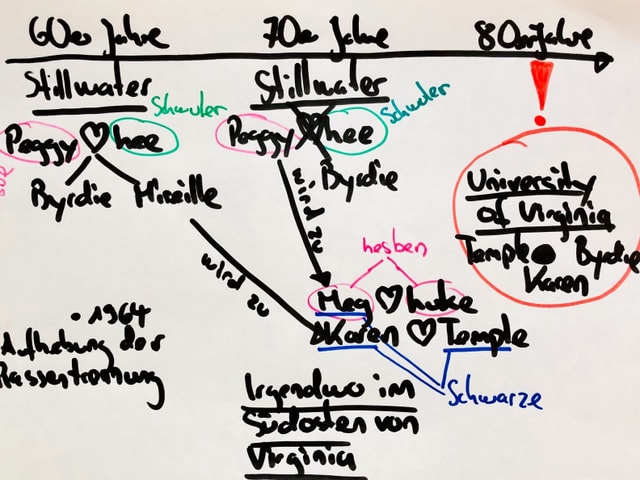 60er Jahre
70er Jahre
80er Jahre
Stillwater
Stillwater
!
Schwuler
Schwuler
Peggy ♡ hee
Peggy hee
Byrdie Mireille
Byrdie
wird zu
wird zu
University
of Virginia
Temple Byrdie
Karen
lesben
Meg ♡ luke
Karen ♡ Temple
Schwarze
• 1964
Aufhebung der
Rassentrennung
Irgendwo im
Südosten von
Virginia